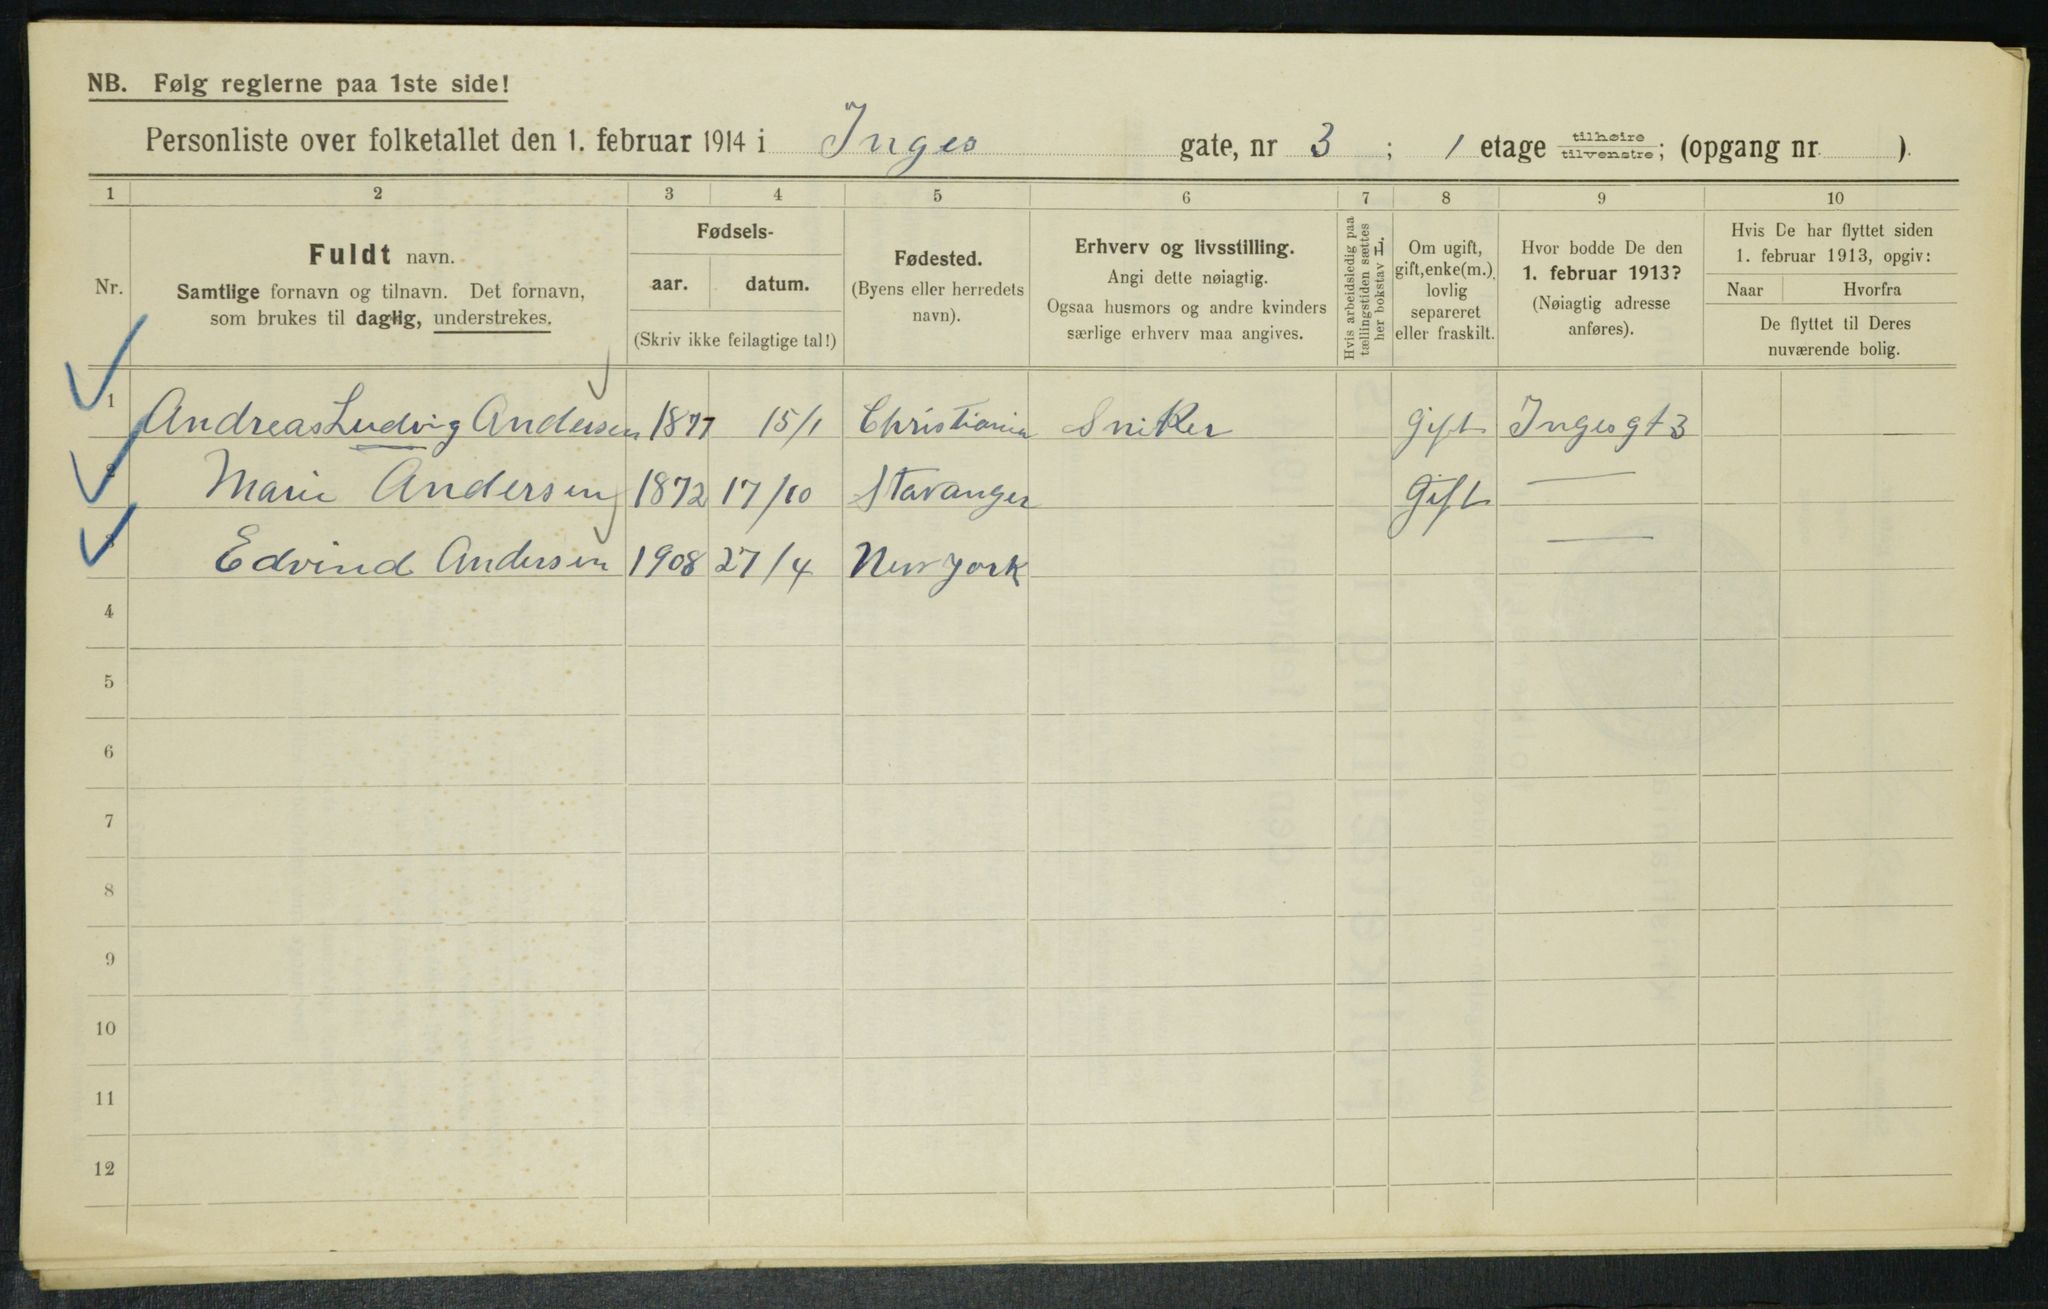 NB. Følg reglerne paa 1ste side!
Personliste over folketallet den 1. februar 1914 i Inges gate, nr 3 ; 1 etage tilhøire/tilvenstre; (opgang nr. ).
1 2 3 4 5 6 7 8 9 10
Nr.
Fuldt navn.
Samtlige fornavn og tilnavn. Det fornavn,
som brukes til daglig, understrekes.
Fødsels-
aar. datum.
(Skriv ikke feilagtige tal!)
Fødested.
(Byens eller herredets
navn).
Erhverv og livsstilling.
Angi dette nøiagtig.
Ogsaa husmors og andre kvinders
særlige erhverv maa angives.
Hvis arbeidsledig paa
tællingstiden sættes
her bokstav L.
Om ugift,
gift, enke(m.),
lovlig
separeret
eller fraskilt.
Hvor bodde De den
1. februar 1913?
(Nøiagtig adresse
anføres).
Hvis De har flyttet siden
1. februar 1913, opgiv:
Naar Hvorfra
De flyttet til Deres
nuværende bolig.
1 Andreas Ludvig Andersen 1877 15/1 Christiania Sniker Gift Inges gt 3
2 Marie Andersen 1872 17/10 Stavanger Gift —
3 Edvind Andersen 1908 27/4 New york —
4
5
6
7
8
9
10
11
12